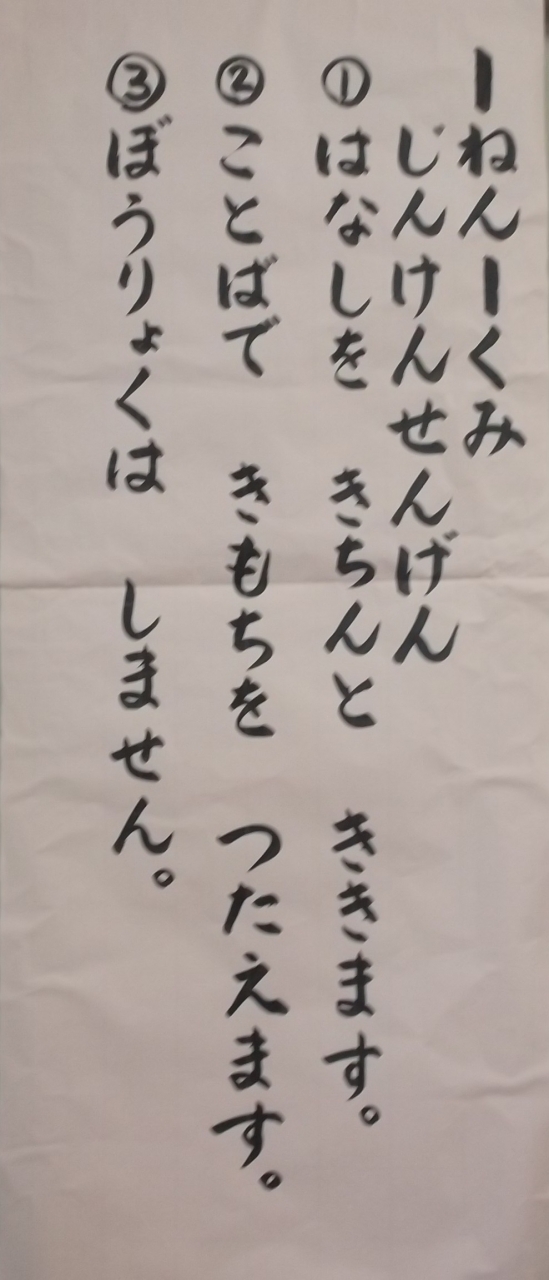 1ねん1くみ
じんけんせんげん
① はなしを きちんと ききます。
② ことばで きもちを つたえます。
③ ぼうりょくは しません。